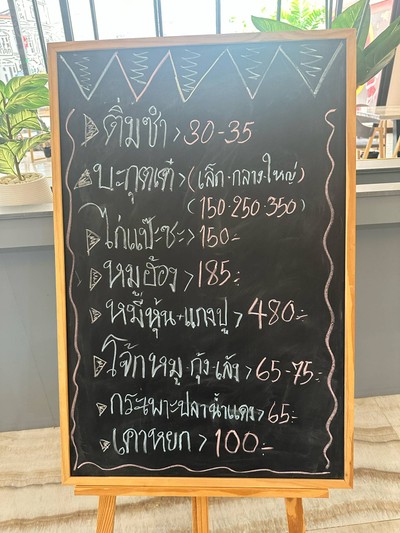 ติ่มซำ > 30-35
บะกุตเต๋ > (เล็ก·กลาง·ใหญ่)
(150·250·350)
ไก่แป๊ะซะ > 150.-
หมูฮ้อง > 185.-
หมี่หุ้น+แกงปู > 480.-
โจ๊กหมู·กุ้ง·เล้ง > 65-75.-
กระเพาะปลาน้ำแดง > 65.-
เคาหยก > 100.-